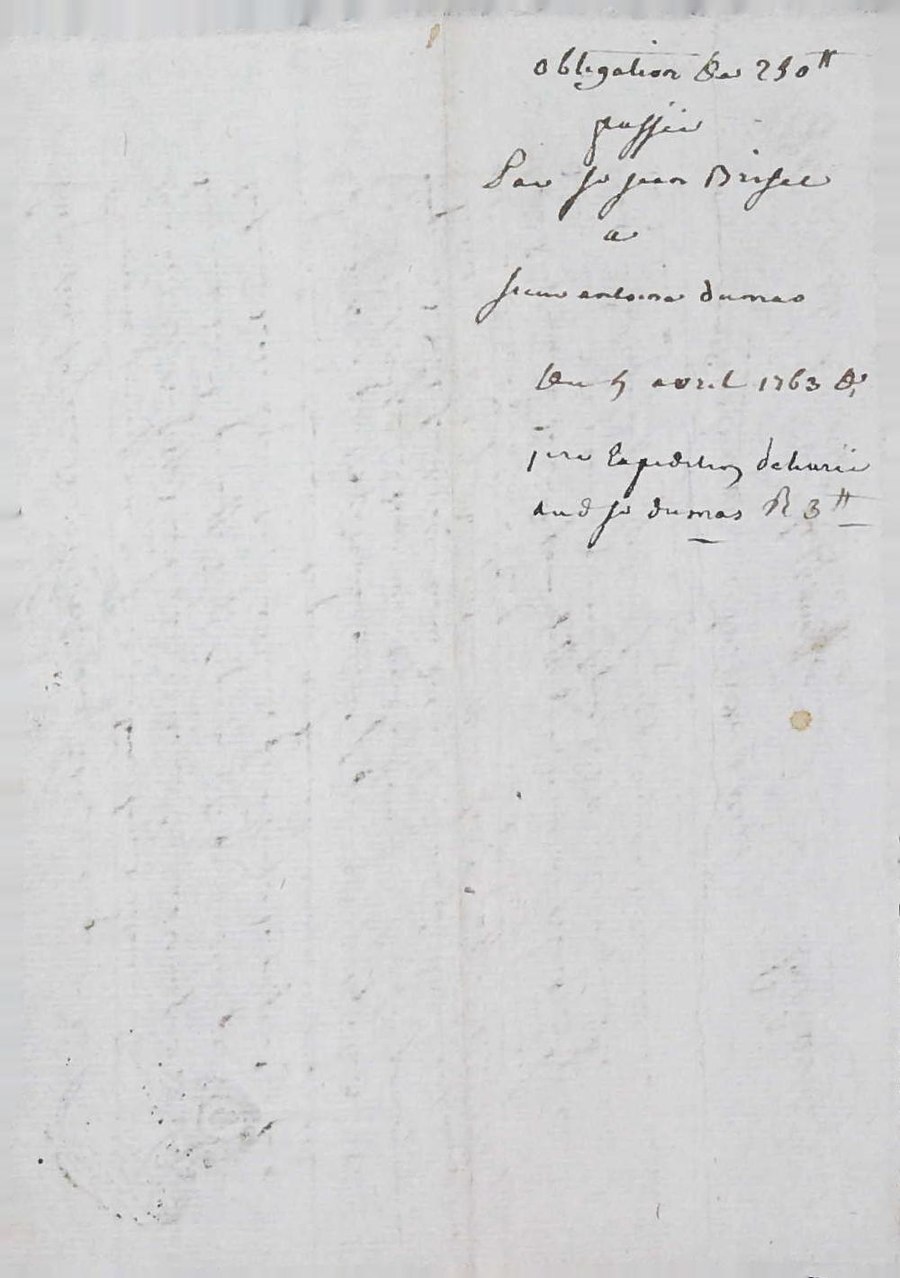 obligation de 250 ₶
passée
Par sr jean Brisset
a
sieur antoine dumas
Du 5 avril 1763
pre Expedition deliurée
aud sr dumas R 3 ₶